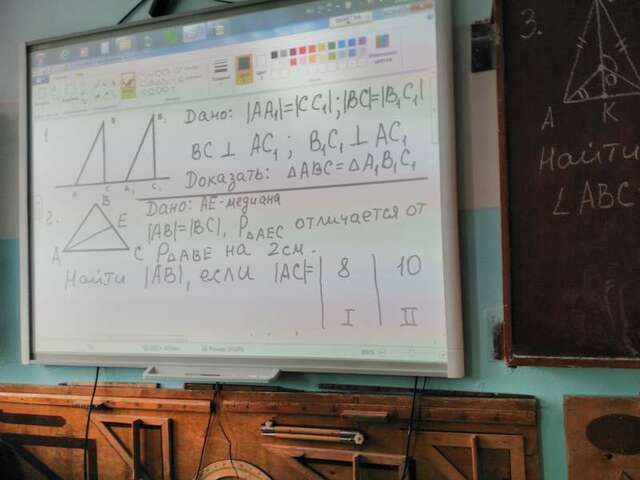 1
B
B₁
A
C
A₁
C₁
Дано: |AA₁|=|CC₁|; |BC|=|B₁C₁|
BC ⊥ AC₁ ; B₁C₁ ⊥ AC₁
Доказать: ΔABC=ΔA₁B₁C₁
2.
B
E
A
C
Дано: AE-медиана
|AB|=|BC|, P ΔAEC отличается от
P ΔABE на 2см.
Найти |AB|, если |AC|= | 8 | 10
I II
3.
A
K
O
Найти
∠ABC